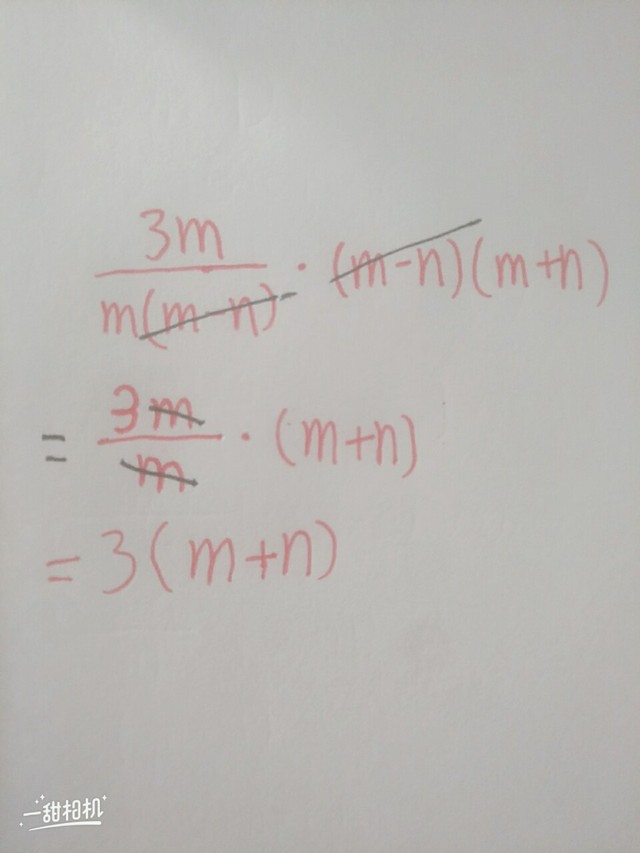 3m/m(m-n) · (m-n)(m+n)
= 3m/m · (m+n)
= 3(m+n)
一甜相机